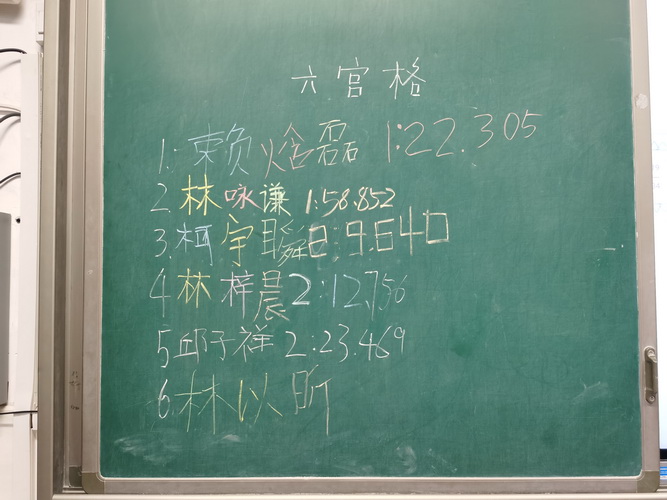 六宫格
1.赖焓磊 1:22.305
2 林咏谦 1:58.852
3.柯宇 2:9.640
4 林梓晨 2:12.756
5 邱子祥 2:23.469
6 林以昕